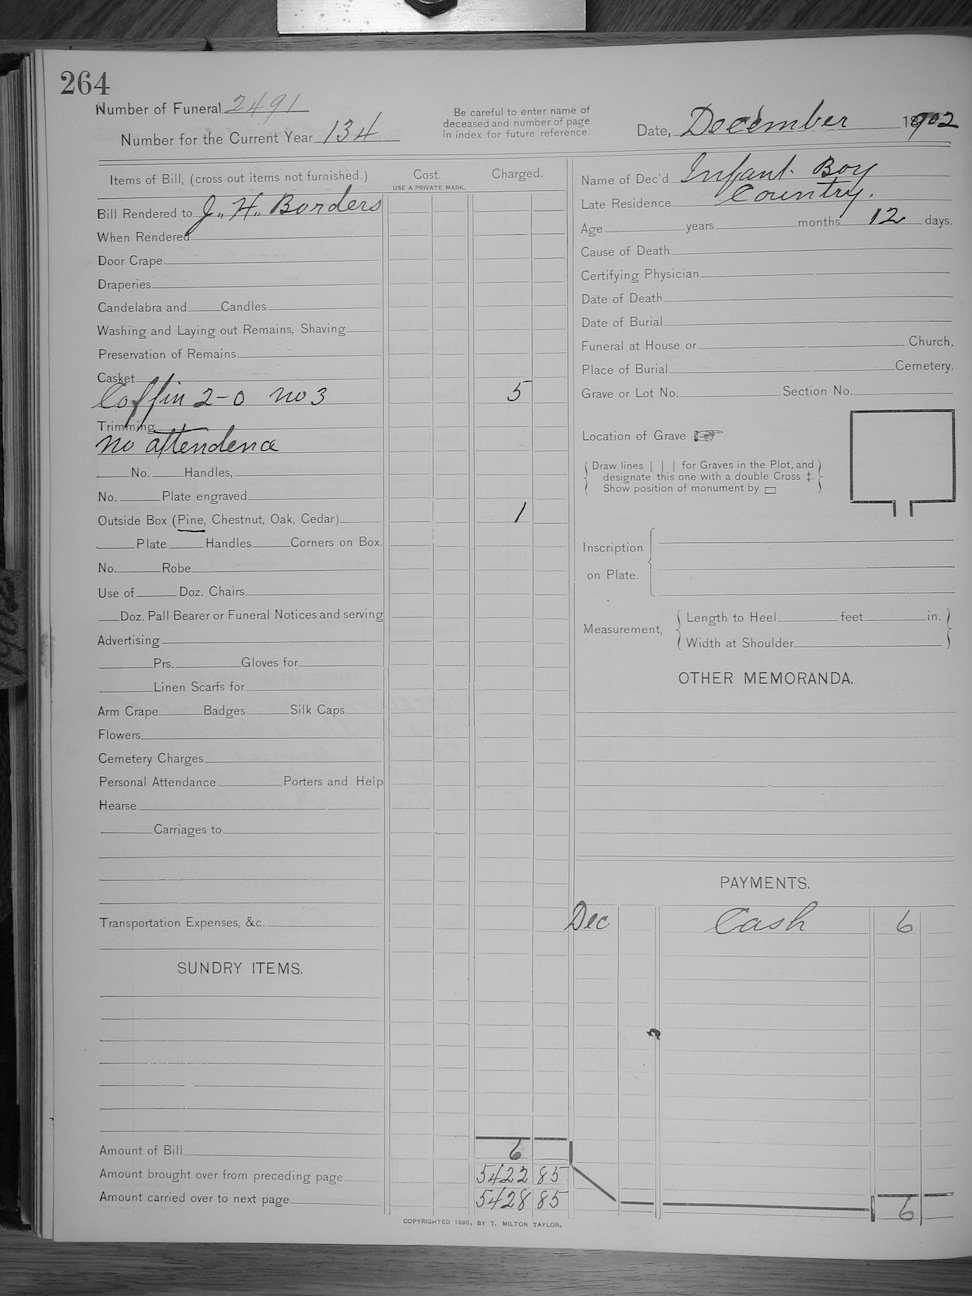 264
Number of Funeral 2491
Number for the Current Year 134
Be careful to enter name of
deceased and number of page
in index for future reference.
Date, December 1902
Items of Bill, (cross out items not furnished.)
Cost.
USE A PRIVATE MARK.
Charged.
Bill Rendered to J. H. Borders
When Rendered
Door Crape
Draperies
Candelabra and Candles
Washing and Laying out Remains, Shaving
Preservation of Remains
Casket
Coffin 2-0 no 3 5
Trimming
no attendence
No. Handles,
No. Plate engraved
Outside Box (Pine, Chestnut, Oak, Cedar) 1
Plate Handles Corners on Box.
No. Robe
Use of Doz. Chairs
Doz. Pall Bearer or Funeral Notices and serving
Advertising
Prs. Gloves for
Linen Scarfs for
Arm Crape Badges Silk Caps
Flowers
Cemetery Charges
Personal Attendance Porters and Help
Hearse
Carriages to
Transportation Expenses, &c.
SUNDRY ITEMS.
Amount of Bill 6
Amount brought over from preceding page 5422 85
Amount carried over to next page 5428 85
Name of Dec'd Infant Boy
Late Residence Country.
Age years months 12 days.
Cause of Death
Certifying Physician
Date of Death
Date of Burial
Funeral at House or Church.
Place of Burial Cemetery.
Grave or Lot No. Section No.
Location of Grave
Draw lines | | | for Graves in the Plot, and
designate this one with a double Cross ‡.
Show position of monument by ▭
Inscription
on Plate.
Length to Heel feet in.
Measurement,
Width at Shoulder
OTHER MEMORANDA.
PAYMENTS.
Dec Cash 6
6
COPYRIGHTED 1890, BY T. MILTON TAYLOR.